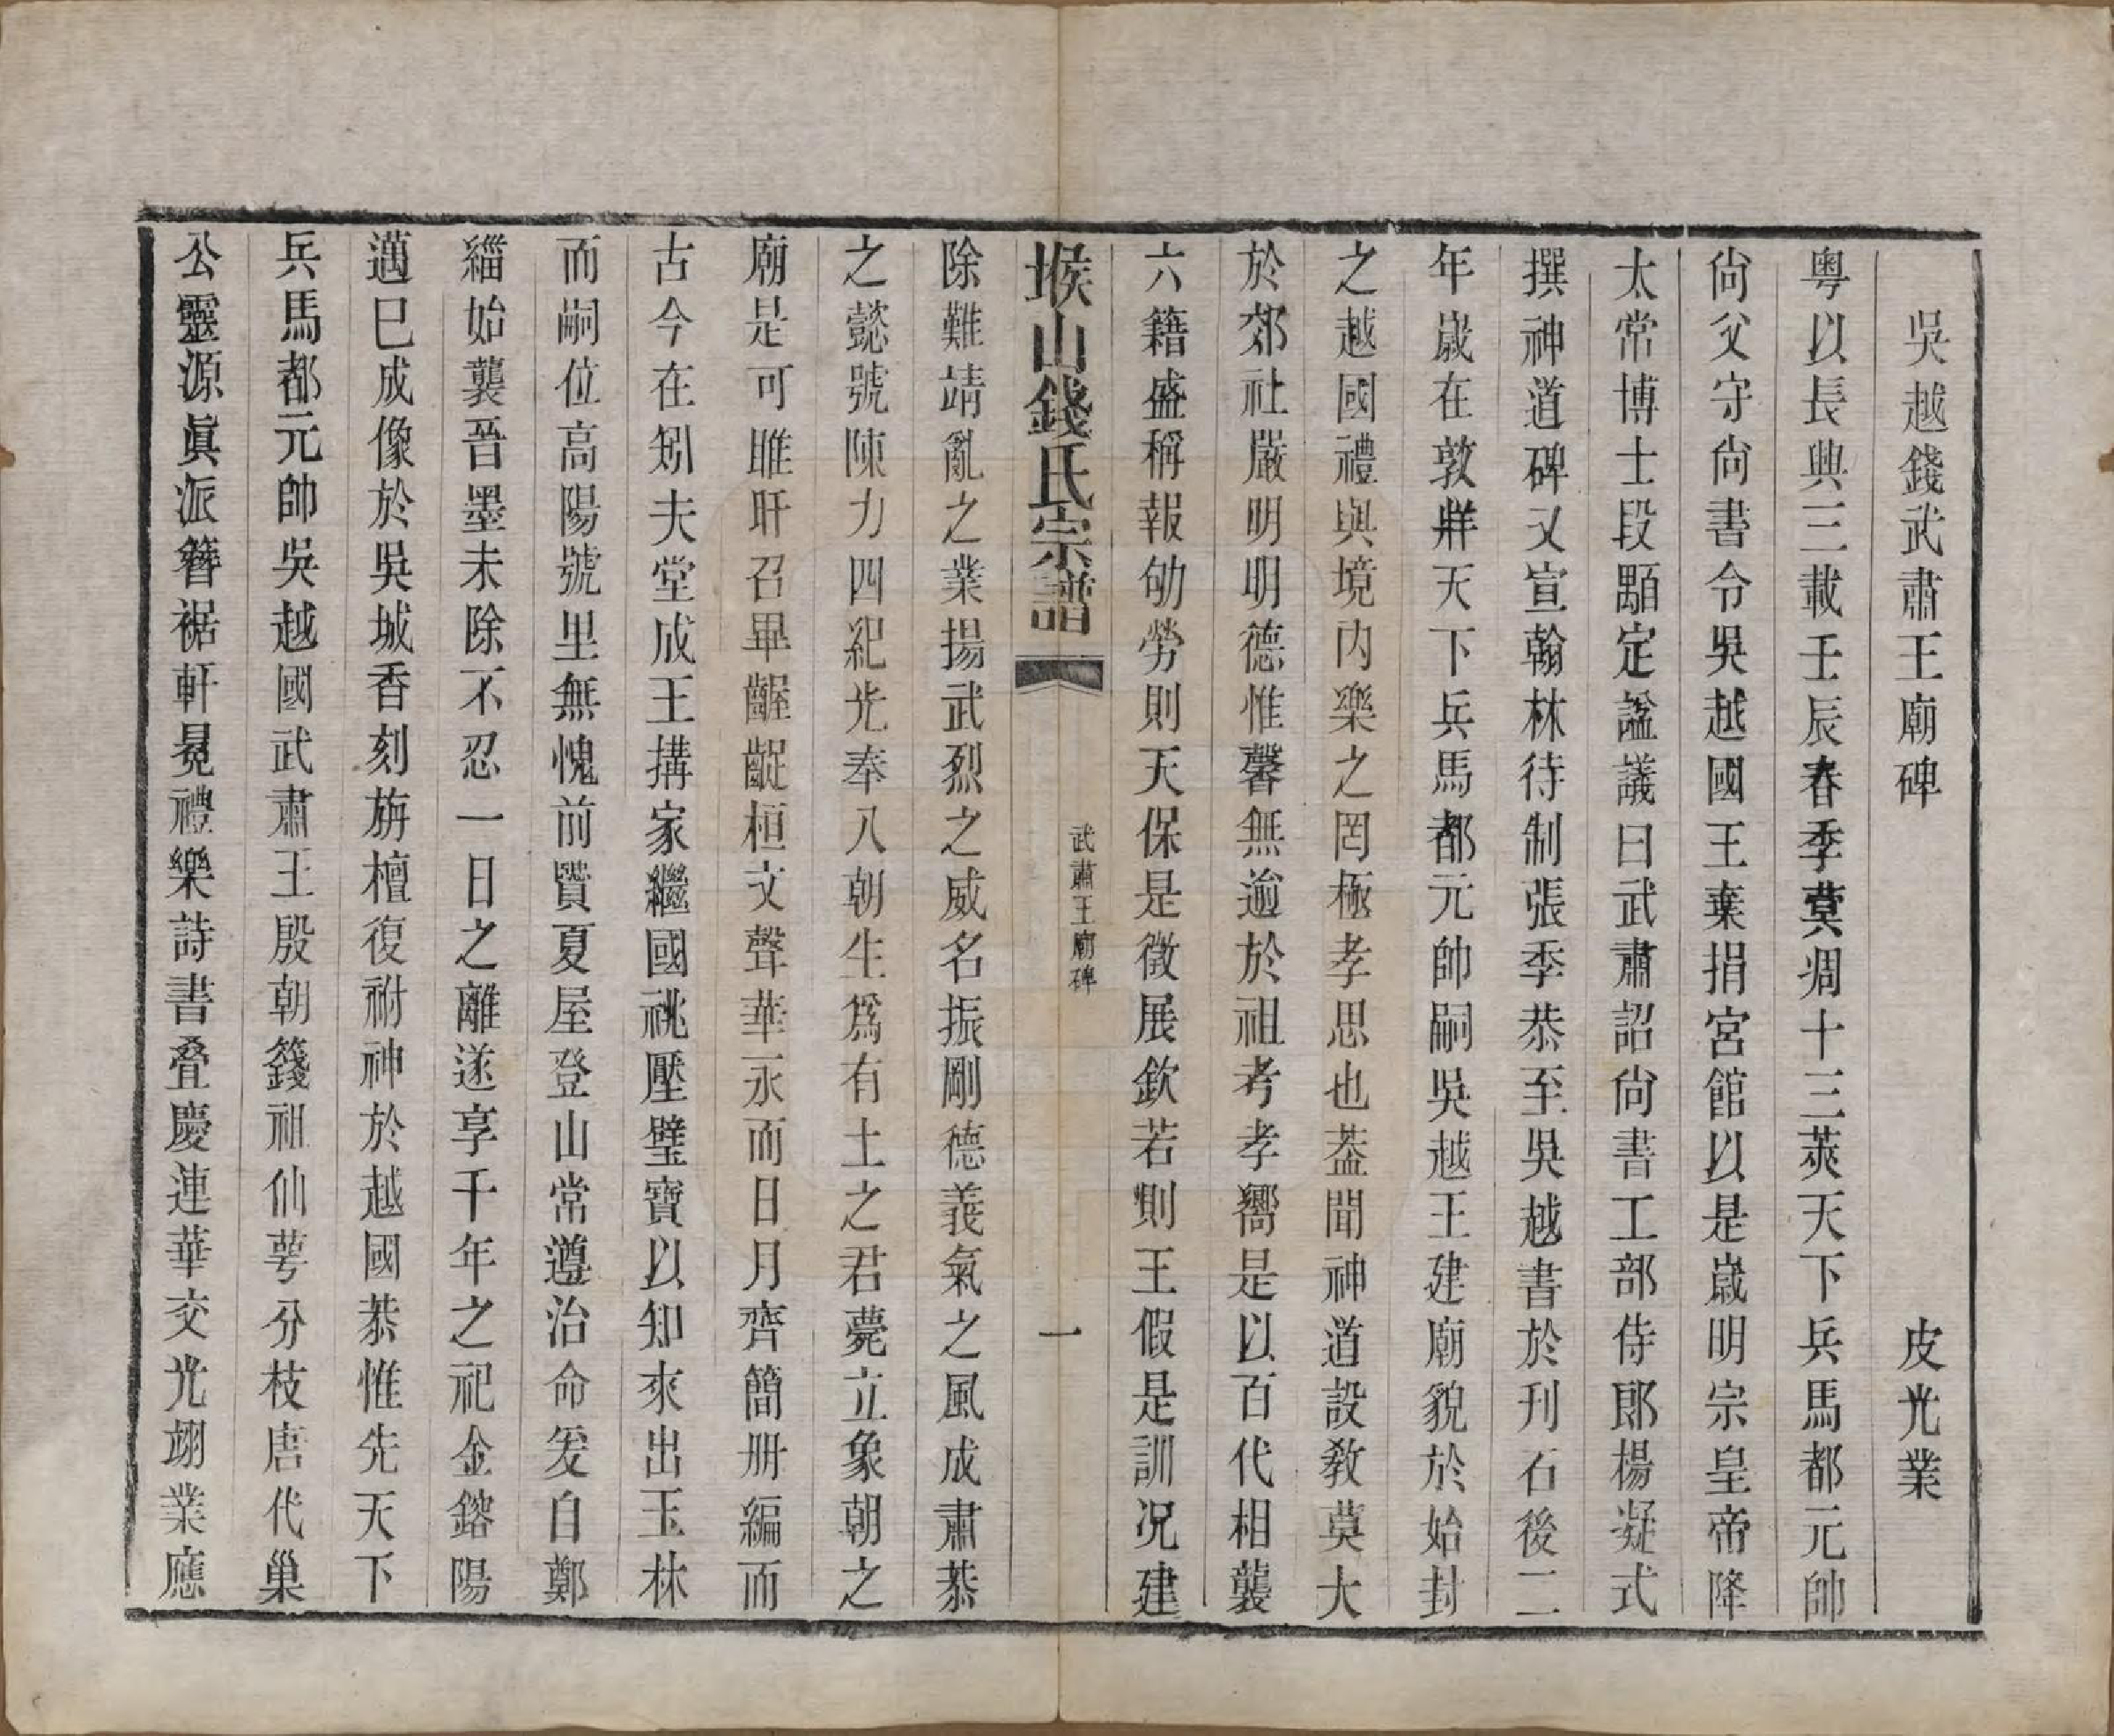 吳越錢武肅王廟碑　皮光業
粵以長興三載壬辰春季蓂凋十三莢天下兵馬都元帥
尙父守尙書令吳越國王棄捐宮館以是歲明宗皇帝降
太常博士段顒定諡議曰武肅詔尙書工部侍郎楊凝式
撰神道碑又宣翰林待制張季恭至吳越書於刋石後二
年歲在敦牂天下兵馬都元帥嗣吳越王建廟貌於始封
之越國禮與境內樂之罔極孝思也葢聞神道設敎莫大
於郊社嚴明明德惟馨無逾於祖考孝嚮是以百代相襲
六籍盛稱報劬勞則天保是徵展欽若則王假是訓况建
除難靖亂之業揚武烈之威名振剛德義氣之風成肅恭
之懿號陳力四紀光奉八朝生爲有土之君薨立象朝之
廟是可睢盱召畢齷齪桓文聲華永而日月齊簡册編而
古今在矧夫堂成王搆家繼國祧壓璧寶以知來出玉林
而嗣位高陽號里無愧前賢夏屋登山常遵治命爰自鄭
緇始襲晉墨未除不忍一日之離遂享千年之祀金鎔陽
邁巳成像於吳城香刻旃檀復祔神於越國恭惟先天下
兵馬都元帥吳越國武肅王殷朝籛祖仙萼分枝唐代巢
公靈源眞派簪裾軒冕禮樂詩書叠慶連華交光翊業應
堠山錢氏宗譜
武肅王廟碑
一